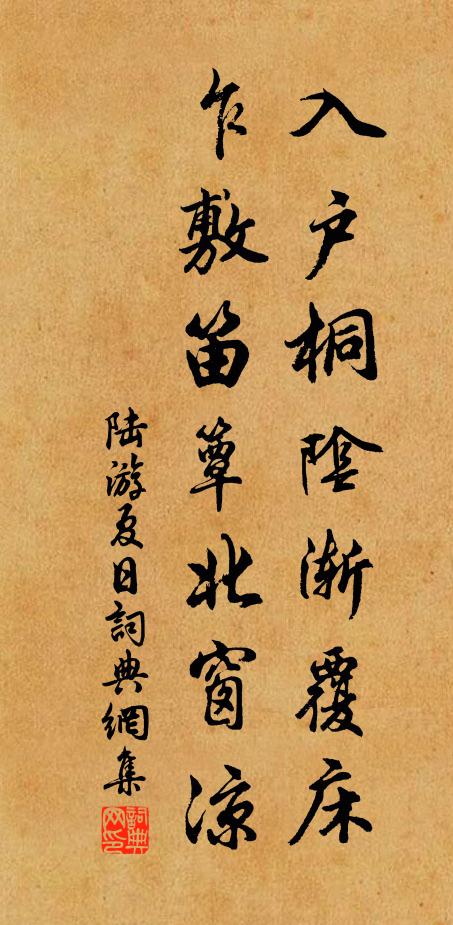 入户桐陰漸覆床
乍敷笛簟北窗涼
陸游夏日詞典網集
詞典网印